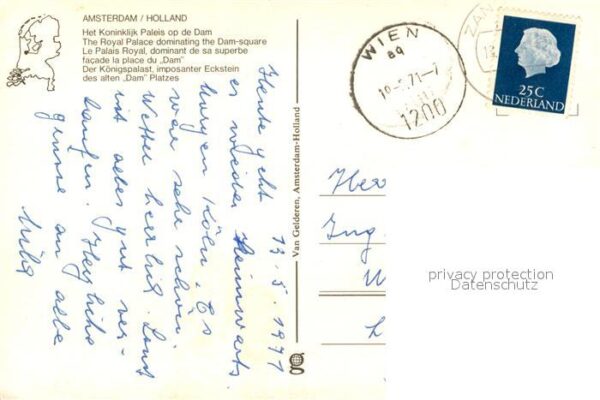 AMSTERDAM / HOLLAND
Het Koninklijk Paleis op de Dam
The Royal Palace dominating the Dam-square
Le Palais Royal, dominant de sa superbe
façade la place du „Dam"
Der Königspalast, imposanter Eckstein
des alten „Dam" Platzes
12.5.1971
Heute geht
es wieder Heimwärts.
burgen Köln. Es
war sehr schön.
Wetter herrlich. Sonst
ist alles gut ver-
laufen. Herzliche
grüsse an alle
Van Gelderen, Amsterdam-Holland
WIEN
1200
ZAN
25C
NEDERLAND
Her
Ing.
W
privacy protection
Datenschutz